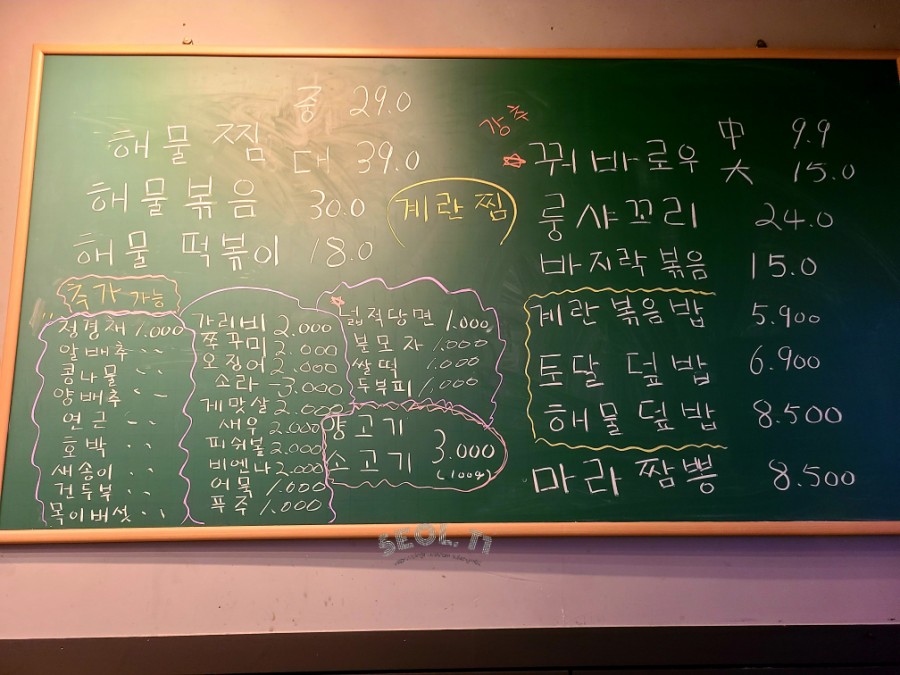 해물찜 중 29.0
대 39.0
해물볶음 30.0
해물 떡볶이 18.0
계란찜
강추
꿔바로우 中 9.9
大 15.0
룽샤꼬리 24.0
바지락볶음 15.0
계란볶음밥 5.900
토달 덮밥 6.900
해물덮밥 8.500
마라짬뽕 8.500
추가 가능
청경채 1.000
알배추 〃
콩나물 〃
양배추 〃
연근 〃
호박 〃
새송이 〃
건두부 〃
목이버섯 〃
가리비 2.000
쭈꾸미 2.000
오징어 2.000
소라 - 3.000
게맛살 2.000
새우 2.000
피쉬볼 2.000
비엔나 2.000
어묵 1.000
푸주 1.000
넓적당면 1.000
분모자 1.000
쌀떡 1.000
두부피 1.000
양고기
소고기 3.000
(100g)
SEOL.N